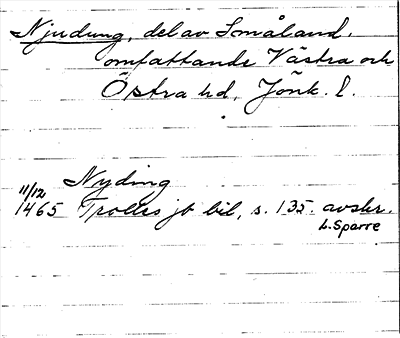 Njudung, del av Småland.
omfattande Västra och
Östra hd, Jönk. l.
Nyding
11/12
1465 Trolles jb bil, s. 135. avskr.
L. Sparre